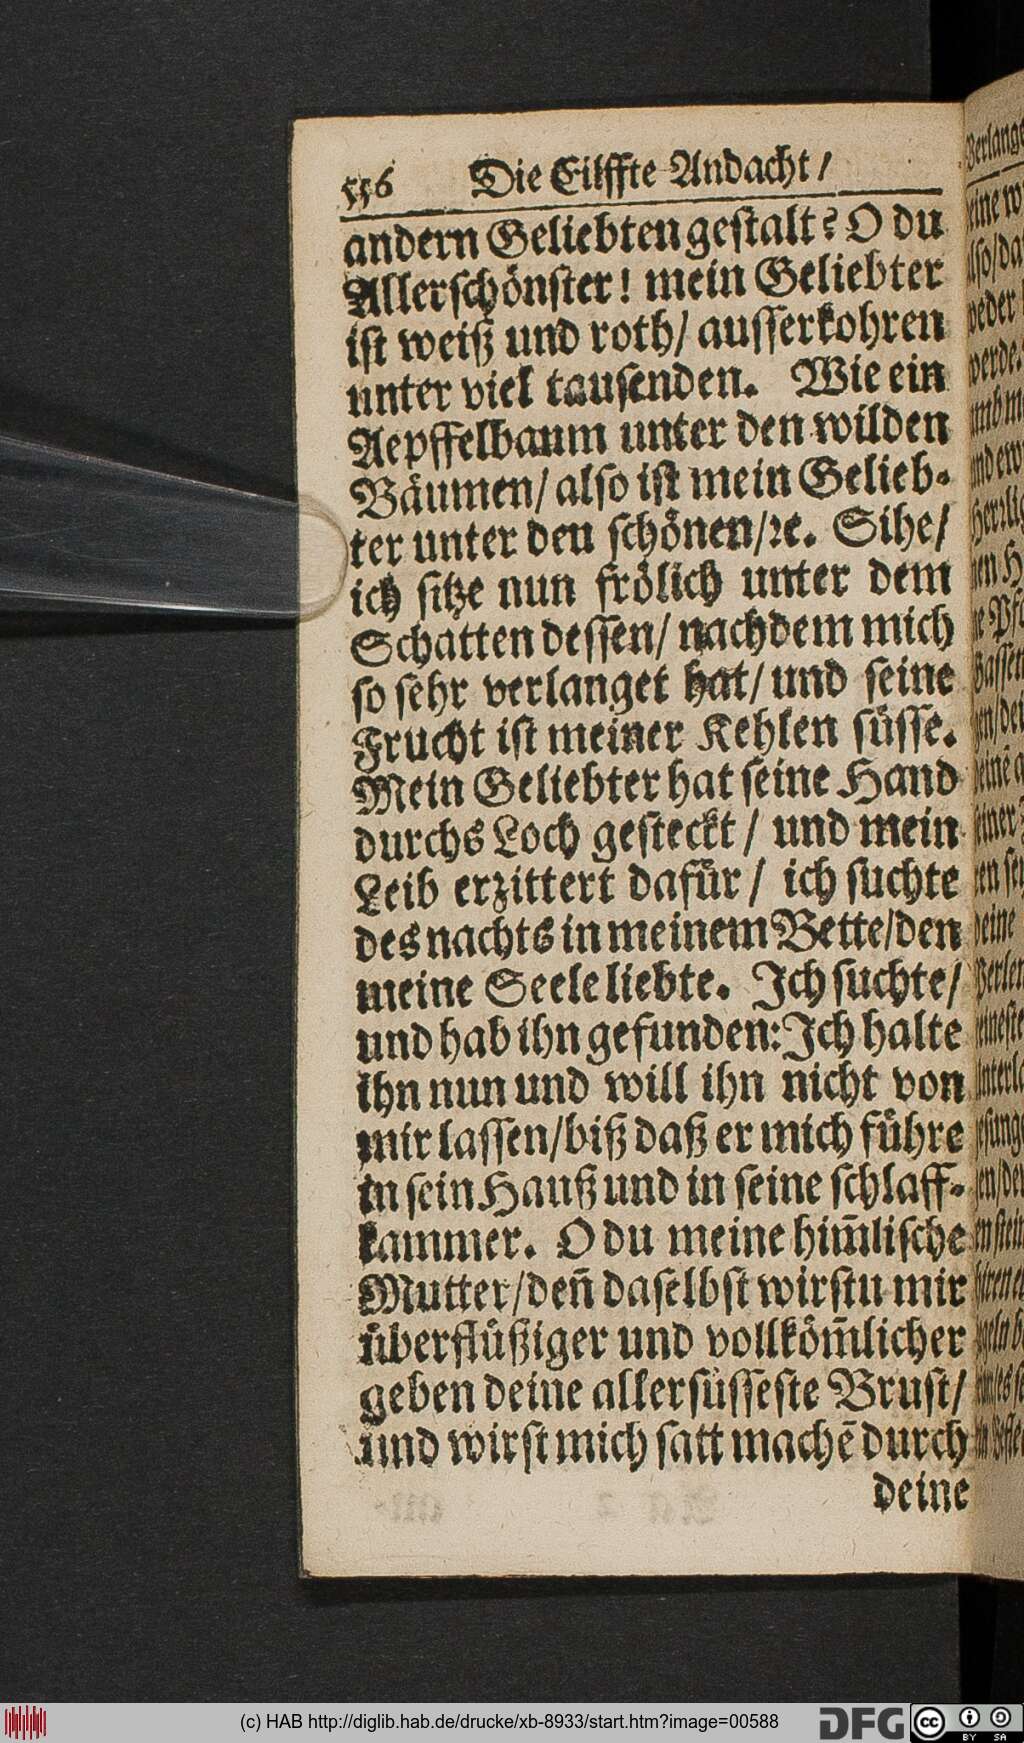 556 Die Eilffte Andacht /
andern Geliebten gestalt? O du
Allerschönster! mein Geliebter
ist weiß und roth / ausserkohren
unter viel tausenden. Wie ein
Aepffelbaum unter den wilden
Bäumen / also ist mein Gelieb-
ter unter den schönen / ꝛc. Sihe /
ich sitze nun frölich unter dem
Schatten dessen / nachdem mich
so sehr verlanget hat / und seine
Frucht ist meiner Kehlen süsse.
Mein Geliebter hat seine Hand
durchs Loch gesteckt / und mein
Leib erzittert dafür / ich suchte
des nachts in meinem Bette / den
meine Seele liebte. Ich suchte /
und hab ihn gefunden: Ich halte
ihn nun und will ihn nicht von
mir lassen / biß daß er mich führe
in sein Hauß und in seine schlaff-
kammer. O du meine him̄lische
Mutter / den̄ daselbst wirstu mir
überflüßiger und vollköm̄licher
geben deine allersüsseste Brust /
und wirst mich satt machē durch
deine
(c) HAB http://diglib.hab.de/drucke/xb-8933/start.htm?image=00588
DFG
cc BY SA